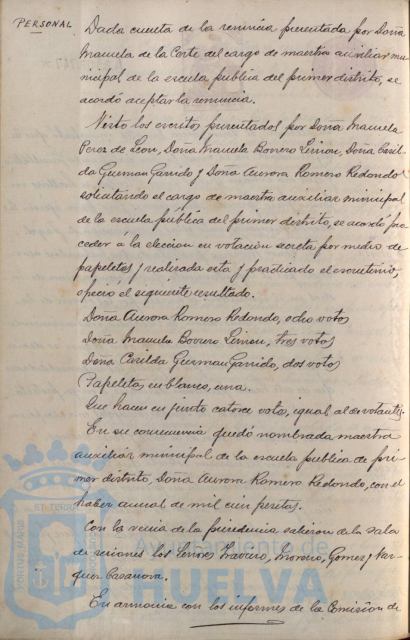 PERSONAL
Dada cuenta de la renuncia presentada por Doña
Manuela de la Corte del cargo de maestra auxiliar mu
nicipal de la escuela publica del primer distrito, se
acordó aceptar la renuncia.
Visto los escritos presentados por Doña Manuela
Perez de Leon, Doña Manuela Borrero Limon, Doña Casil
da Guzman Garrido y Doña Aurora Romero Redondo
solicitando el cargo de maestra auxiliar municipal
de la escuela pública del primer distrito, se acordó pro
ceder á la eleccion en votación secreta por medio de
papeletas y realizada esta y practicado el escrutinio,
ofreció el siguiente resultado.
Doña Aurora Romero Redondo, ocho votos
Doña Manuela Borrero Limon, tres votos
Doña Casilda Guzman Garrido, dos votos
Papeletas en blanco, una.
Que hacen en junto catorce votos, igual al de votantes.
En su consecuencia quedó nombrada maestra
auxiliar municipal de la escuela publica de pri
mer distrito, Doña Aurora Romero Redondo, con el
haber anual de mil cien pesetas.
Con la venia de la presidencia salieron de la sala
de sesiones los Señores Moreno, Gomez y Vaz
quez Casanova.
En armonia con los informes de la Comision de
PORTUS MARIS
ET TERRE
Ayuntamiento de
HUELVA